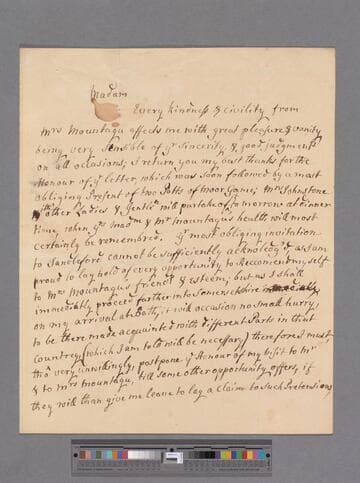 Madam
Every kindness & civility from
Mrs Mountagu affects me with great pleasure & vanity
being very sensible of yr sincerity & good judgment
on all occasions; I return you my best thanks for the
Honour of yr letter, which was soon followed by a most
obliging Present of two Potts of moor Game; Mrs Johnstone
wth other Ladies & Gentn will partake of to morrow at dinner
time, when yrs madm & Mr mountagus health will most
certainly be remembred. Yr most obliging invitation
to Sandleford cannot be sufficiently acknoledg'd as I am
proud to lay hold of every opportunity to Reccomend my self
to Mrs Mountagus friendp & esteem, but as I shall
immediatly proceed farther into Somersetshire
on my arrival at Bath, it will occasion no small hurry,
to be there made acquainted with different Parts in that
Countrey (which I am told will be necessary) therefore I must,
tho' very unwillingly, postpone ye Honour of my visit to Mr
& to Mrs mountagu, till some other opportunity offers, if
they will than give me leave to lay a Claim to such Pretensions,